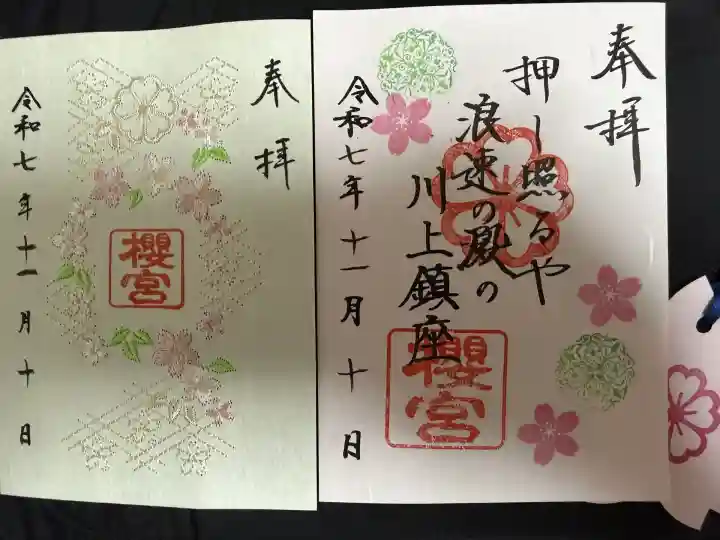 奉拝
櫻宮
令和七年十一月十日
奉拝
押し照るや
浪速の
川上鎮座
櫻宮
令和七年十一月十日